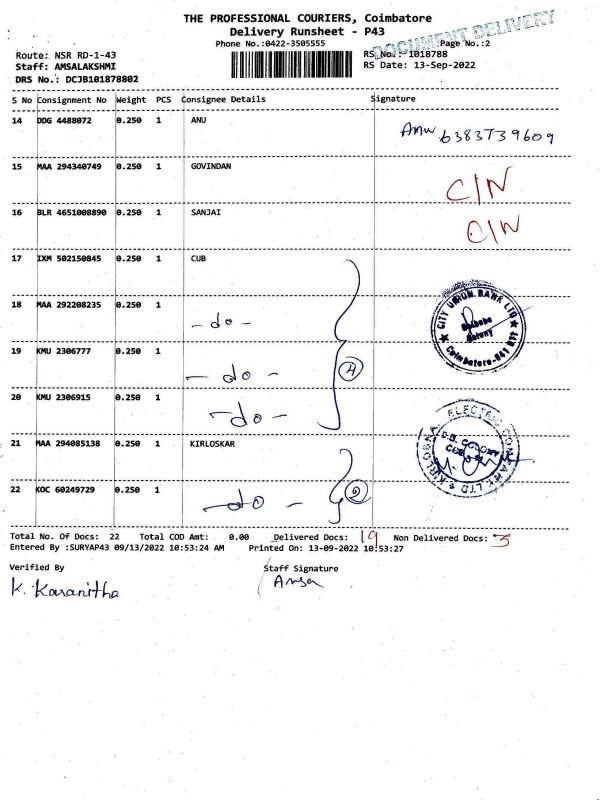 THE PROFESSIONAL COURIERS, Coimbatore
Delivery Runsheet - P43
DOCUMENT DELIVERY
Phone No.:0422-3505555 Page No.:2
Route: NSR RD-1-43 RS No.: 1018788
Staff: AMSALAKSHMI RS Date: 13-Sep-2022
DRS No.: DCJB101878802
S No Consignment No Weight PCS Consignee Details Signature
14 DDG 4488072 0.250 1 ANU Anu 6383739609
15 MAA 294340749 0.250 1 GOVINDAN C/N
16 BLR 4651008890 0.250 1 SANJAI C/N
17 IXM 502150845 0.250 1 CUB
18 MAA 292208235 0.250 1 -do-
CITY UNION BANK LTD
Saibaba Colony
Coimbatore-641 011
19 KMU 2306777 0.250 1 -do- 4
20 KMU 2306915 0.250 1 -do-
21 MAA 294085138 0.250 1 KIRLOSKAR
ELECTRIC COMPANY LTD
22 KOC 60249729 0.250 1 -do- 2
Total No. Of Docs: 22 Total COD Amt: 0.00 Delivered Docs: 19 Non Delivered Docs: 3
Entered By :SURYAP43 09/13/2022 10:53:24 AM Printed On: 13-09-2022 10:53:27
Verified By Staff Signature
K. Karanitha Amsa